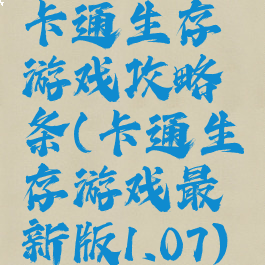 卡通生存
游戏攻略
条(卡通生
存游戏最
新版1.07)